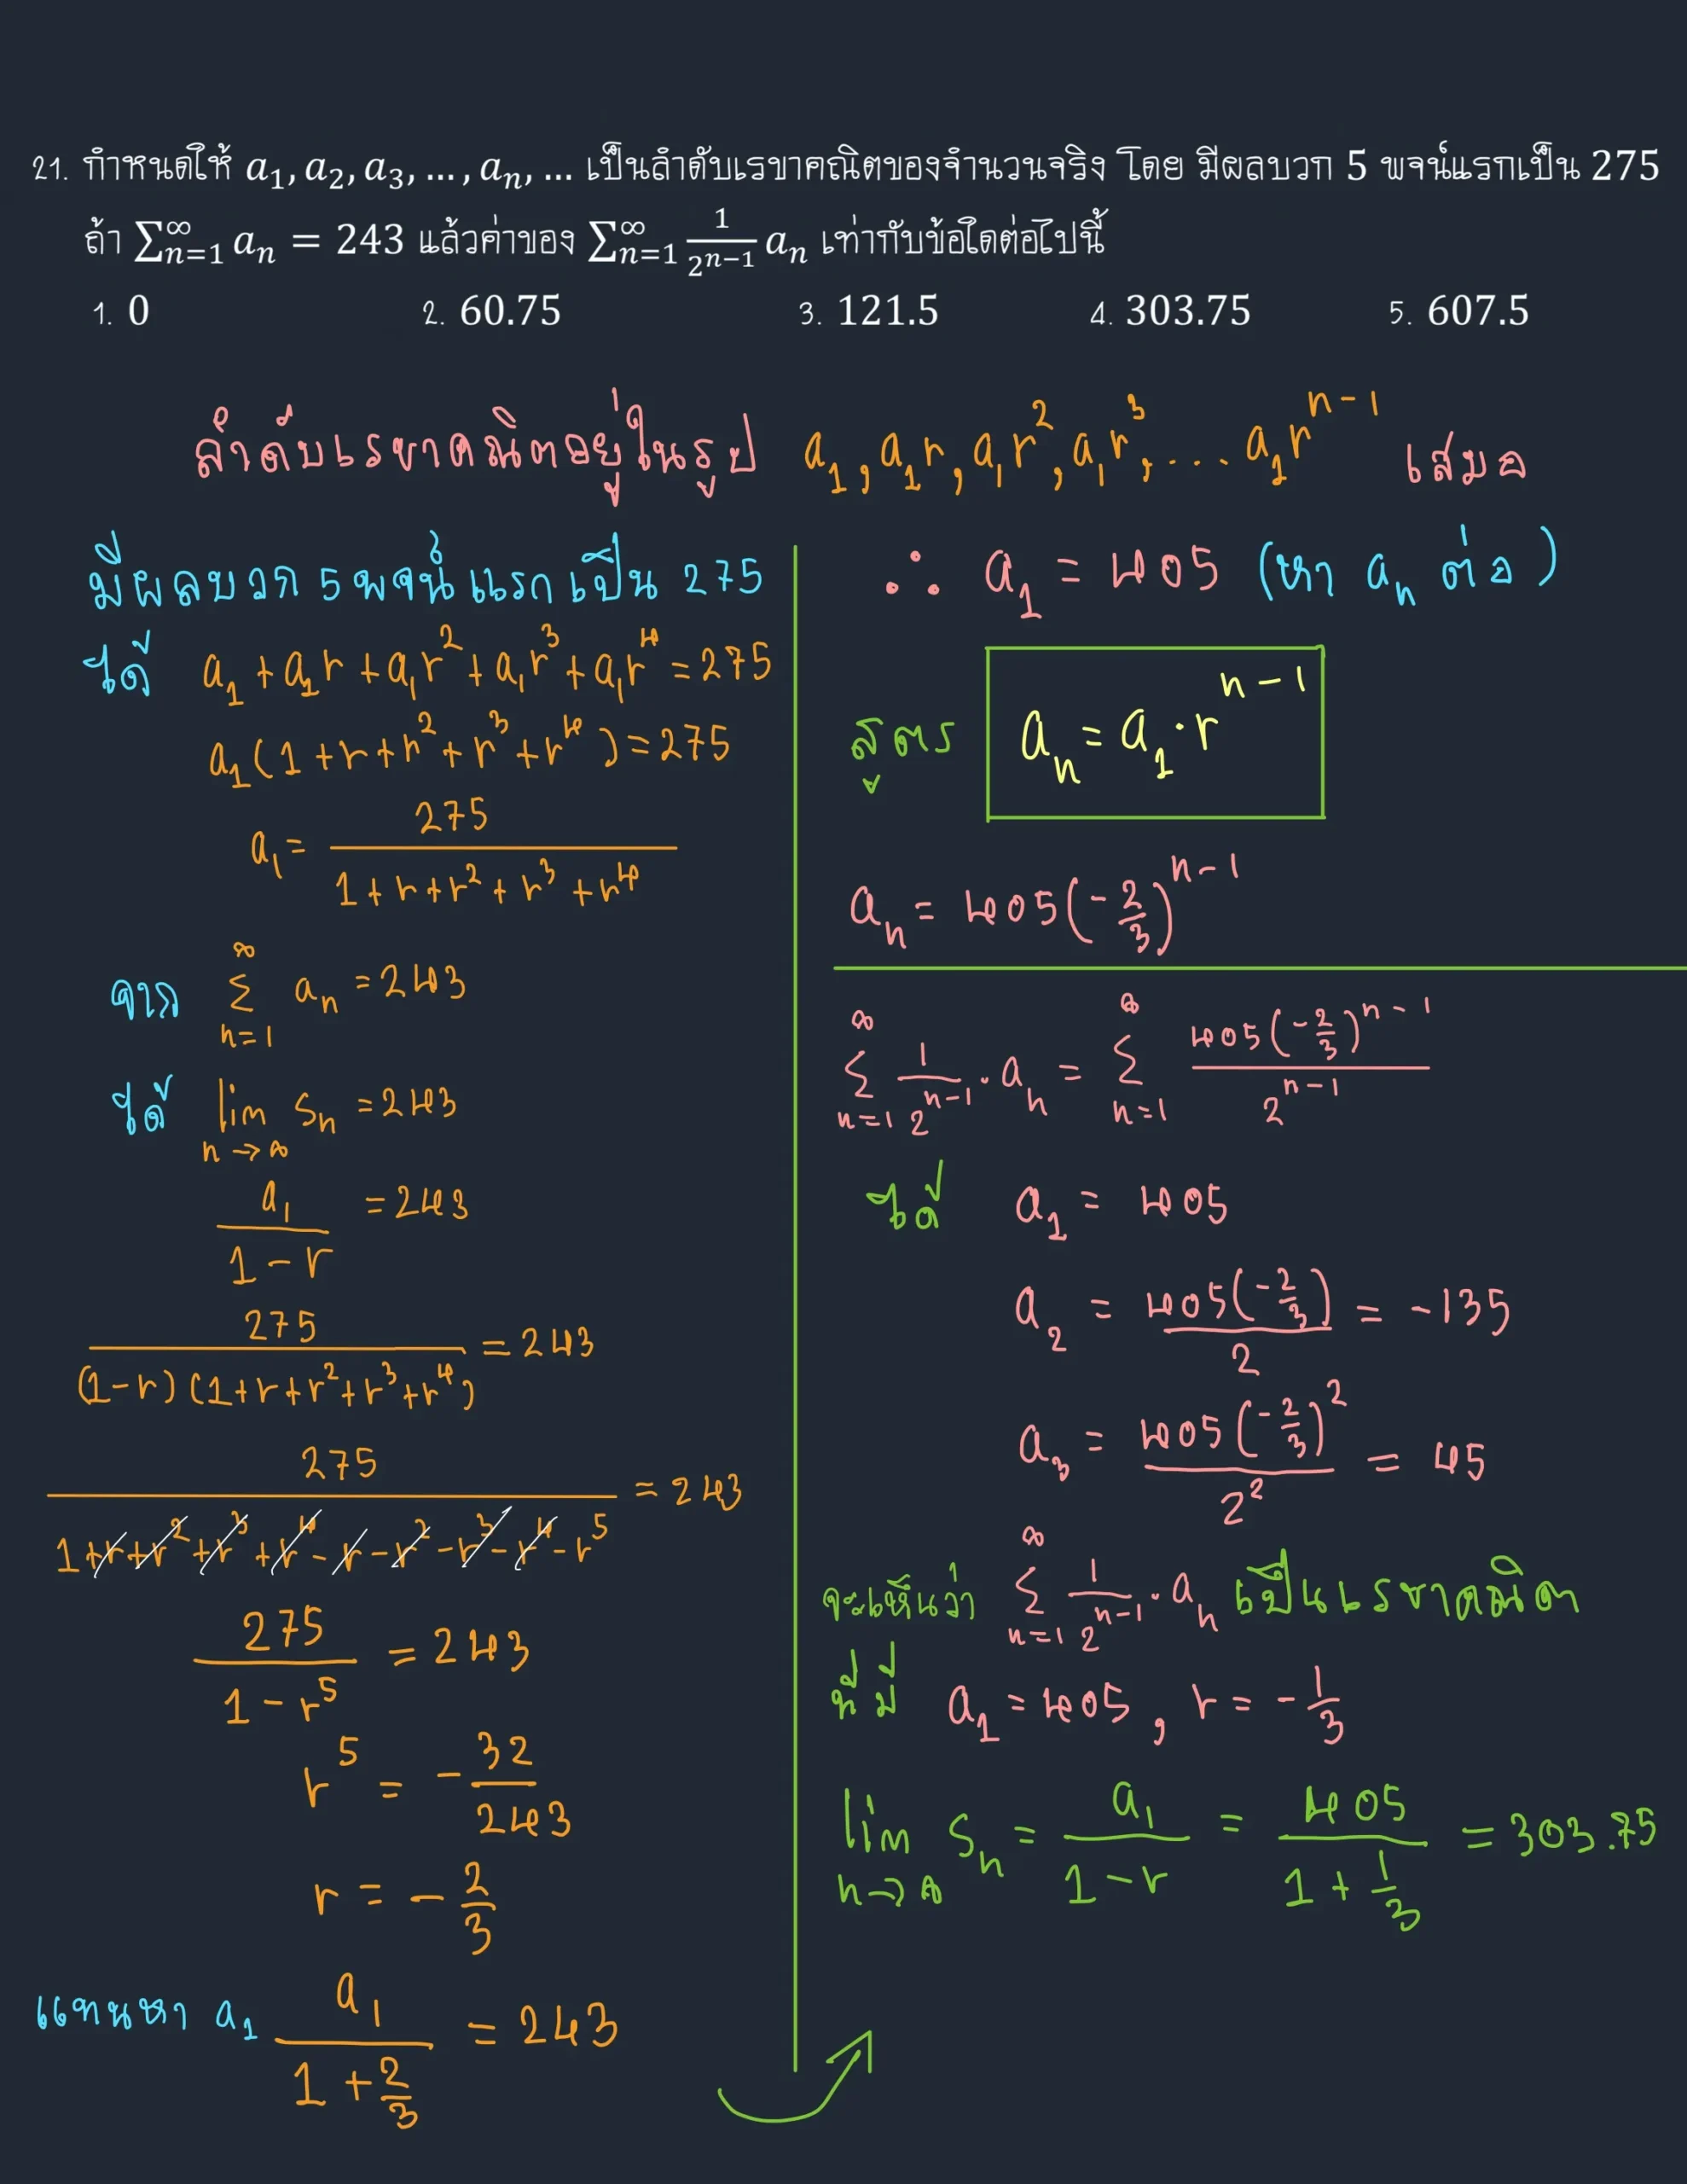 21. กำหนดให้ a₁, a₂, a₃, … , aₙ, … เป็นลำดับเรขาคณิตของจำนวนจริง โดย มีผลบวก 5 พจน์แรกเป็น 275
ถ้า ∑_{n=1}^{∞} aₙ = 243 แล้วค่าของ ∑_{n=1}^{∞} 1/2^{n−1} aₙ เท่ากับข้อใดต่อไปนี้
1. 0 2. 60.75 3. 121.5 4. 303.75 5. 607.5
ลำดับเรขาคณิตอยู่ในรูป a₁, a₁r, a₁r², a₁r³, ... a₁r^{n-1} เสมอ
มีผลบวก 5 พจน์แรกเป็น 275
ได้ a₁ + a₁r + a₁r² + a₁r³ + a₁r⁴ = 275
a₁(1 + r + r² + r³ + r⁴) = 275
a₁ = 275/(1 + r + r² + r³ + r⁴)
จาก ∑_{n=1}^{∞} aₙ = 243
ได้ lim_{n→∞} Sₙ = 243
a₁/(1 − r) = 243
275/((1−r)(1+r+r²+r³+r⁴)) = 243
275/(1+r+r²+r³+r⁴−r−r²−r³−r⁴−r⁵) = 243
275/(1 − r⁵) = 243
r⁵ = −32/243
r = −2/3
แทนหา a₁ a₁/(1 + 2/3) = 243
∴ a₁ = 405 (หา aₙ ต่อ)
สูตร aₙ = a₁·r^{n−1}
aₙ = 405(−2/3)^{n−1}
∑_{n=1}^{∞} 1/2^{n−1}·aₙ = ∑_{n=1}^{∞} 405(−2/3)^{n−1}/2^{n−1}
ได้ a₁ = 405
a₂ = 405(−2/3)/2 = −135
a₃ = 405(−2/3)²/2² = 45
จะเห็นว่า ∑_{n=1}^{∞} 1/2^{n−1}·aₙ เป็นเรขาคณิต
ที่มี a₁ = 405, r = −1/3
lim_{n→∞} Sₙ = a₁/(1−r) = 405/(1 + 1/3) = 303.75